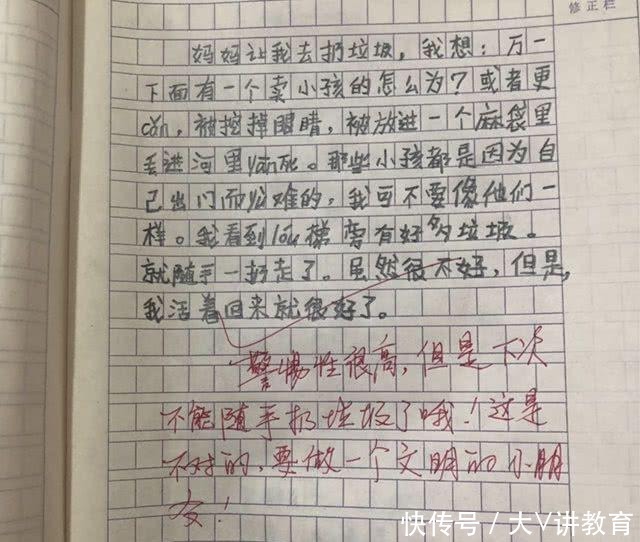 修正栏
妈妈让我去扔垃圾，我想：万一
下面有一个卖小孩的怎么为？或者更
cǎn，被挖掉眼睛，被放进一个麻袋里
丢进河里yān死。那些小孩都是因为自
己出门而必难的，我可不要像他们一
样。我看到lóu梯旁有好多垃圾。
就随手一扔走了。虽然很不好，但是，
我活着回来就很好了。
警惕性很高，但是下次
不能随手扔垃圾了哦！这是
不对的，要做一个文明的小朋
友！
快传号／大V讲教育